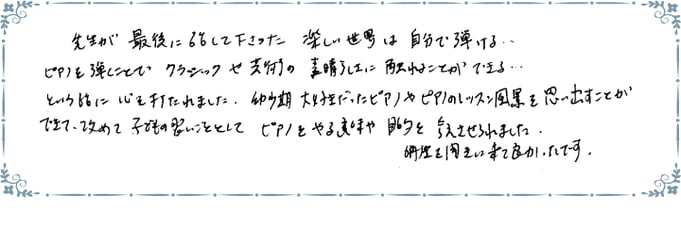 先生が 最後に話して下さった 楽しい世界は自分で弾ける‥
ピアノを弾くことで クラシックや芸術の素晴らしさに触れることができる‥
という話に心を打たれました. 幼少期 大好きだったピアノやピアノのレッスン風景を思い出すことが
できて、改めて子どもの習いごととして ピアノをやる意味や目的を考えさせられました.
聞きに来て良かったです.